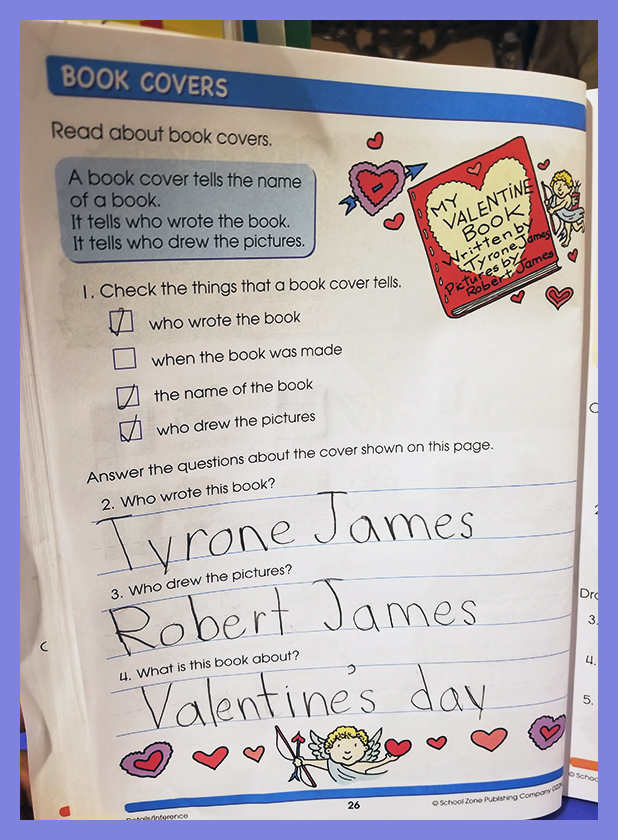 BOOK COVERS
Read about book covers.
A book cover tells the name
of a book.
It tells who wrote the book.
It tells who drew the pictures.
MY
VALENTINE
BOOK
Written by
Tyrone James
Pictures by
Robert James
1. Check the things that a book cover tells.
who wrote the book
when the book was made
the name of the book
who drew the pictures
Answer the questions about the cover shown on this page.
2. Who wrote this book?
Tyrone James
3. Who drew the pictures?
Robert James
4. What is this book about?
Valentine's day
Details/Inference
26
© School Zone Publishing Company
C
C
Dra
3.
4.
5.
© School